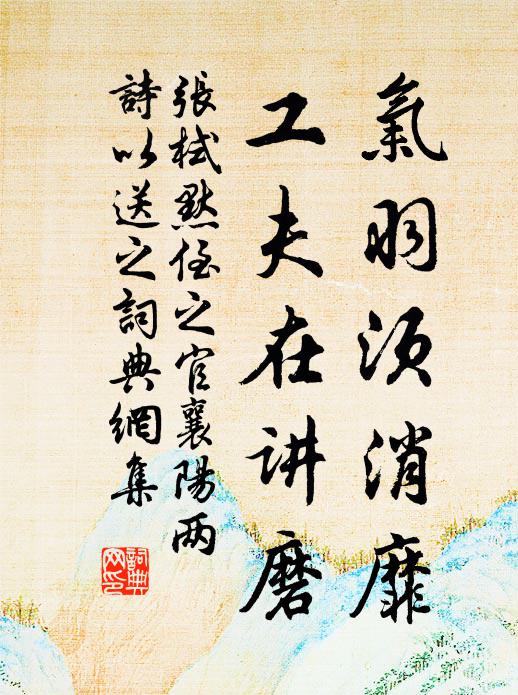 氣羽须消靡
工夫在讲磨
張栻默侄之官襄陽两
詩以送之詞典網集
詞典网印